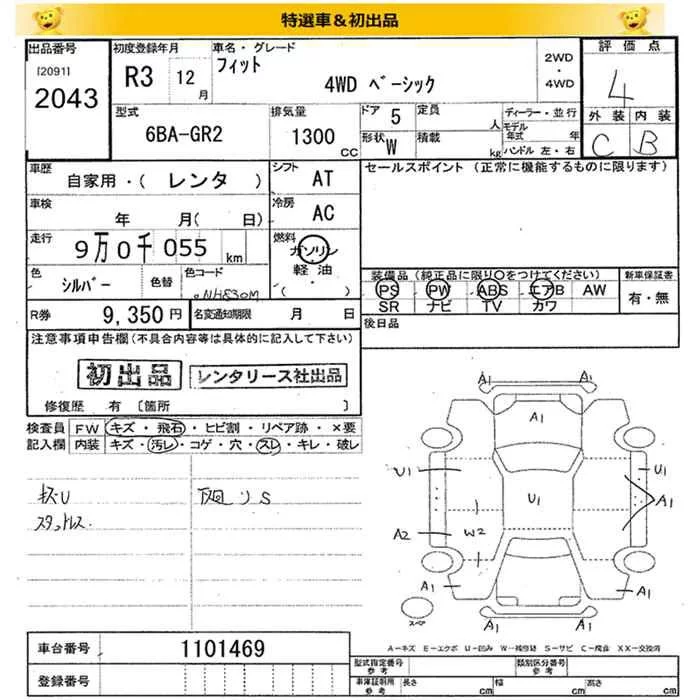 特選車＆初出品
出品番号 初度登録年月 車名・グレード 2WD・4WD 評価点
[2091] 2043 R3 12月 フィット 4WD ベーシック 4
型式 排気量 ドア 5 定員 人 ディーラー・並行 外装 内装
6BA-GR2 1300 CC 形状 W 積載 kg モデル年式 年 ハンドル 左・右 C B
車歴 自家用・(レンタ) シフト AT セールスポイント (正常に機能するものに限ります)
車検 年 月( 日) 冷房 AC
走行 9万0千055 km 燃料 ガソリン 軽油・( )
色 シルバー 色替 色コード NH830M
装備品 (純正品に限り○をつけてください) 新車保証書
PS PW ABS エアB AW 有・無
SR ナビ TV カワ
R券 9,350円 名変通知期限 月 日 後日品
注意事項申告欄(不具合内容等は具体的に記入して下さい)
初出品 レンタリース社出品
修復歴 有 [箇所 ]
検査員 FW キズ・飛石・ヒビ割・リペア跡・×要
記入欄 内装 キズ・汚レ・コゲ・穴・スレ・キレ・破レ
キズU
スタットレス
下廻りS
A1 A1
A1
U1 U1 U1 A1
A2 W2
A1 A1
A1 A1
スペア
A－キズ E－エクボ U－凹み W－補修跡 S－サビ C－腐食 XX－交換済
車台番号 1101469
登録番号
型式指定番号 参考 類別区分番号 参考
車庫証明用 参考 長さ cm 幅 cm 高さ cm